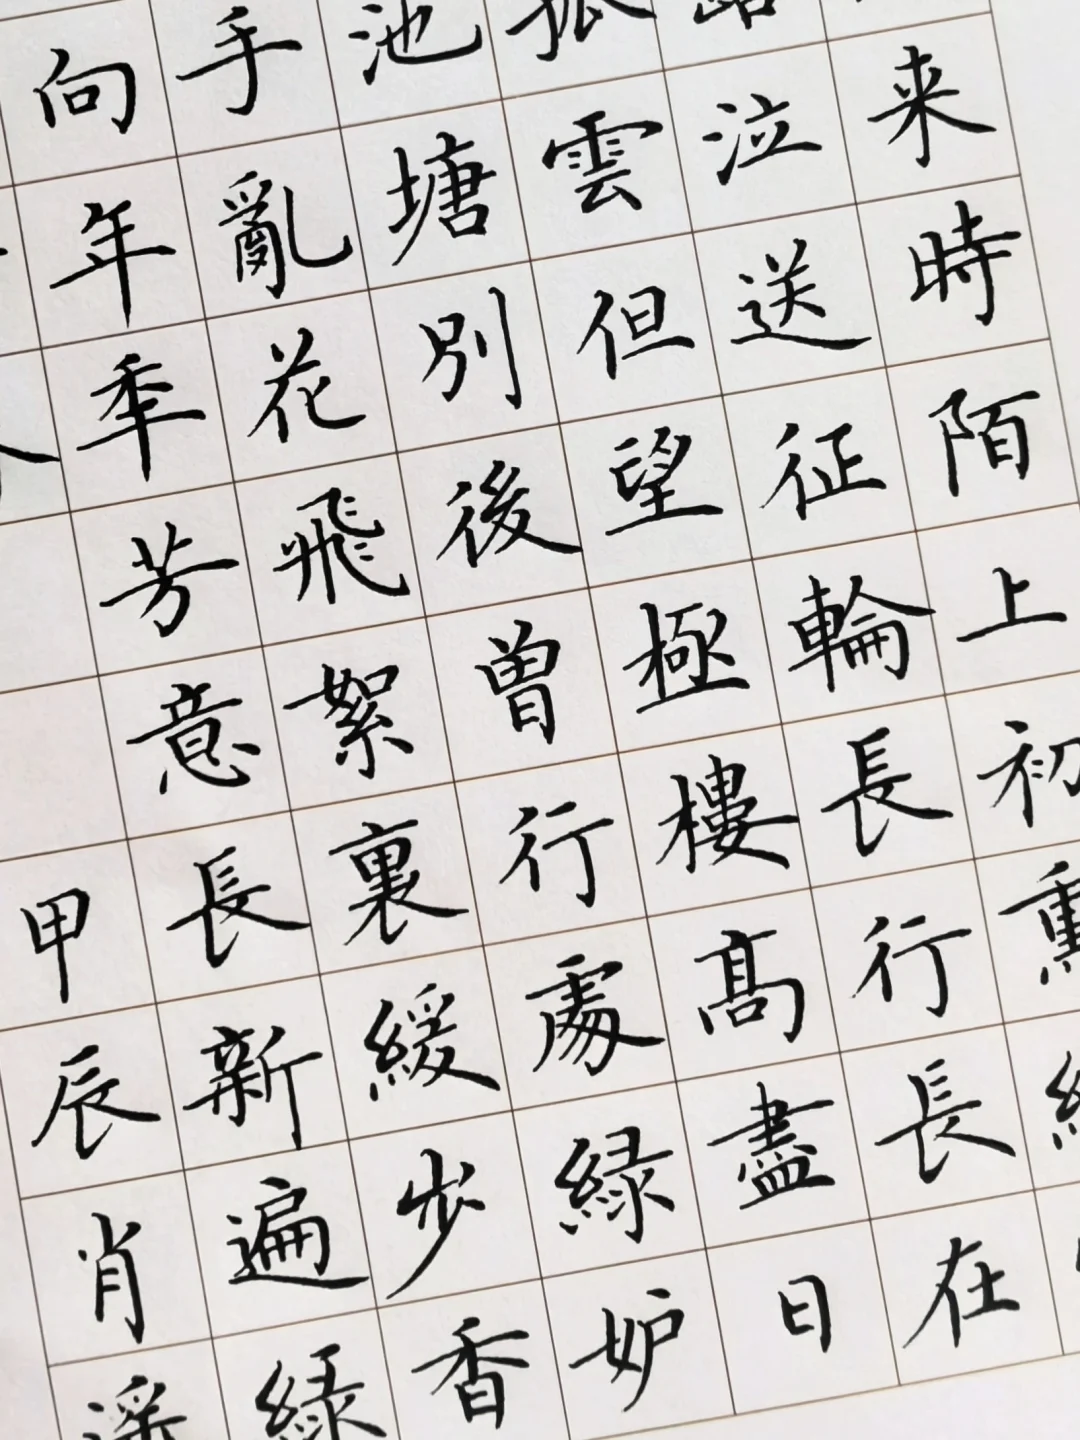 来時陌上初熏
泣送征輪長行長在
孤雲但望極樓高盡日
池塘別後曾行處緑妒
手亂花飛絮裏緩步香
向年秊芳意長新遍緑
甲辰肖